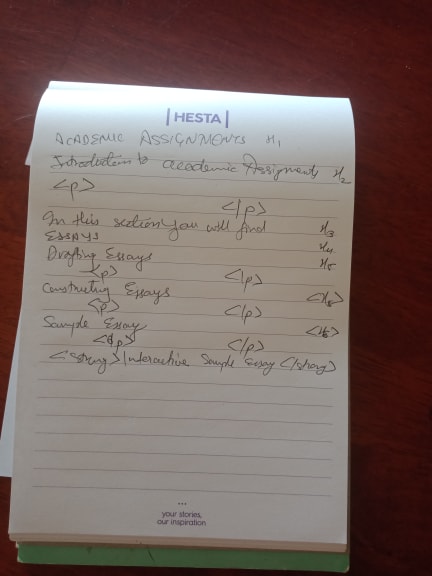 | HESTA |
ACADEMIC ASSIGNMENTS H1
Introduction to academic Assignments H2
<p> </p>
In this section you will find H3
ESSAYS H4
Drafting Essays H5
<p> </p>
Constructing Essays <H5>
<p> </p>
Sample Essay <H5>
<p> </p>
<strong> Interactive Sample essay </strong>
your stories,
our inspiration